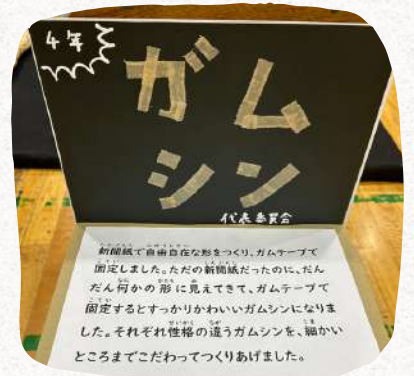 4年
ガム
シン
代表委員会
新聞紙で自由自在な形をつくり、ガムテープで
固定しました。ただの新聞紙だったのに、だん
だん何かの形に見えてきて、ガムテープで
固定するとすっかりかわいいガムシンになりま
した。それぞれ性格の違うガムシンを、細かい
ところまでこだわってつくりあげました。